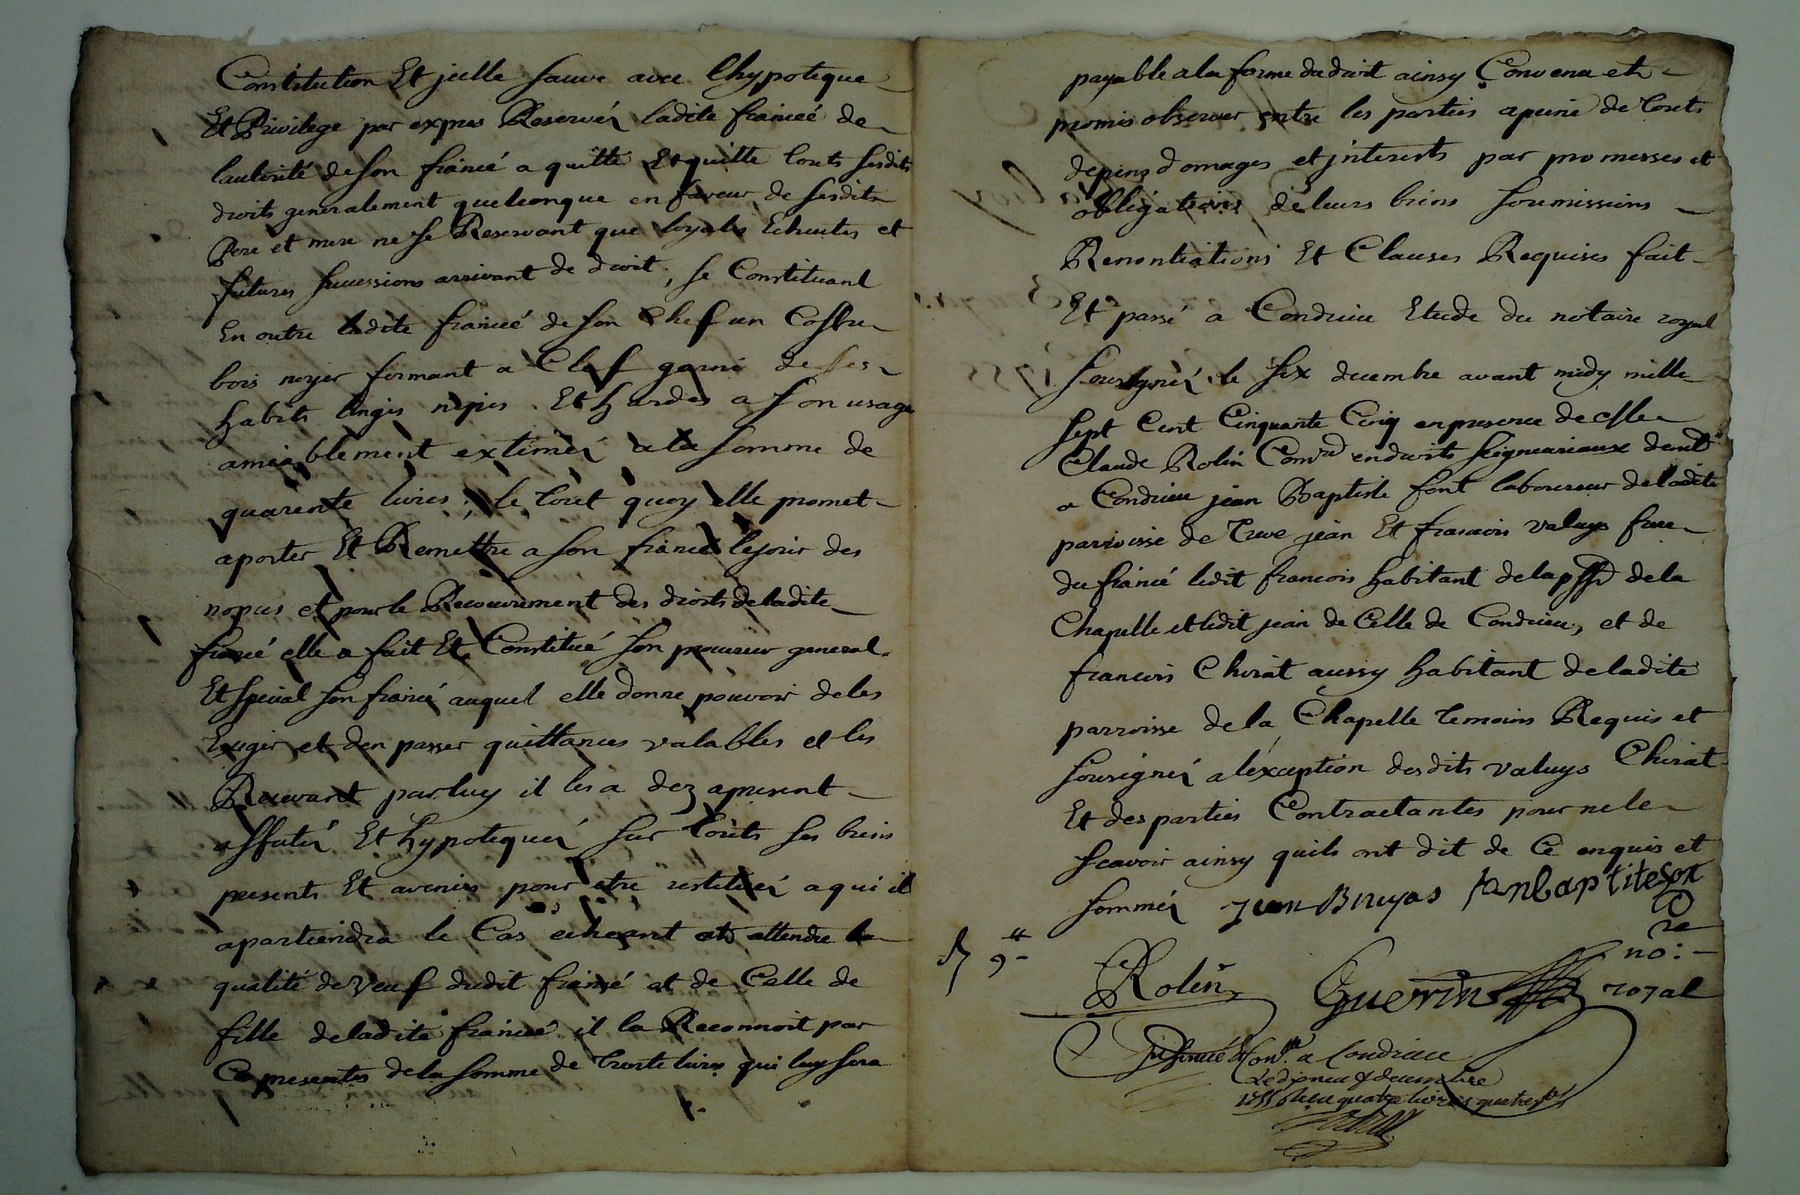 Constitution Et jcelle sauve avec lhypoteque
Et Privilege par expres Reservéz ladite fiancéé de
lautorité de son fiancé a quitté Et quitte touts sesdits
droits generalement quelconque en faveur de sesdits
Pere et mere ne se Reservant que loyales Echuttes et
futures successions arrivant de droit, se Constituant
En outre ladite fiancéé de son Chef un Coffre
bois noyer fermant a Clef garni de ses
habits linges nipes Et hardes a son usage
amiablement extiméz a la somme de
quarente livres, le tout quoy elle promet
aporter Et Remettre a son fiancé lejour des
nopces et pour le Recouvrement des droits de ladite
fiancé elle a fait Et Constitué son procureur general
Et special son fiancé auquel elle donne pouvoir de les
Exiger et den passer quittances valables et les
Recevant par luy il les a dez apresent
assuréz Et hypotequéz sur touts ses biens
presents Et avenirs pour etre restituéz a qui il
apartiendra le Cas echeant attendre la
qualité de veuf dudit fiancé et de Celle de
fille de ladite fiancéé il la Reconnoit par
Ces presentes de la somme de trente livres qui luy sera
payable a la forme du droit ainsy Convenu et
promis observer entre les parties a peine de touts
depens domages et jnterests par promesses et
obligations de leurs biens soumissions
Renontiations Et Clauses Requises fait
Et passé a Condrieu Etude du notaire royal
soussignéz le six decembre avant midy mille
sept Cent Cinquante Cinq en presence de Me
Claude Rolin Comre en droits seigneuriaux demt
a Condrieu jean Baptiste font laboureur de ladite
parroisse de Tuve jean Et francois valuys frere
du fiancé ledit francois habitant de la psse de la
Chapelle et ledit jean de Celle de Condrieu, et de
francois Chirat aussy habitant de ladite
parroisse de la Chapelle temoins Requis et
soussignéz a léxception desdits valuys Chirat
Et des parties Contractantes pour ne le
scavoir ainsy quils ont dit de Ce enquis et
somméz jean Bruyas janbaptitefon
Rolin Guerin no: royal
Insinué & Con.lé a Condrieu
Le dixneuf decembre
1755 Recu quatre livres quatre s.